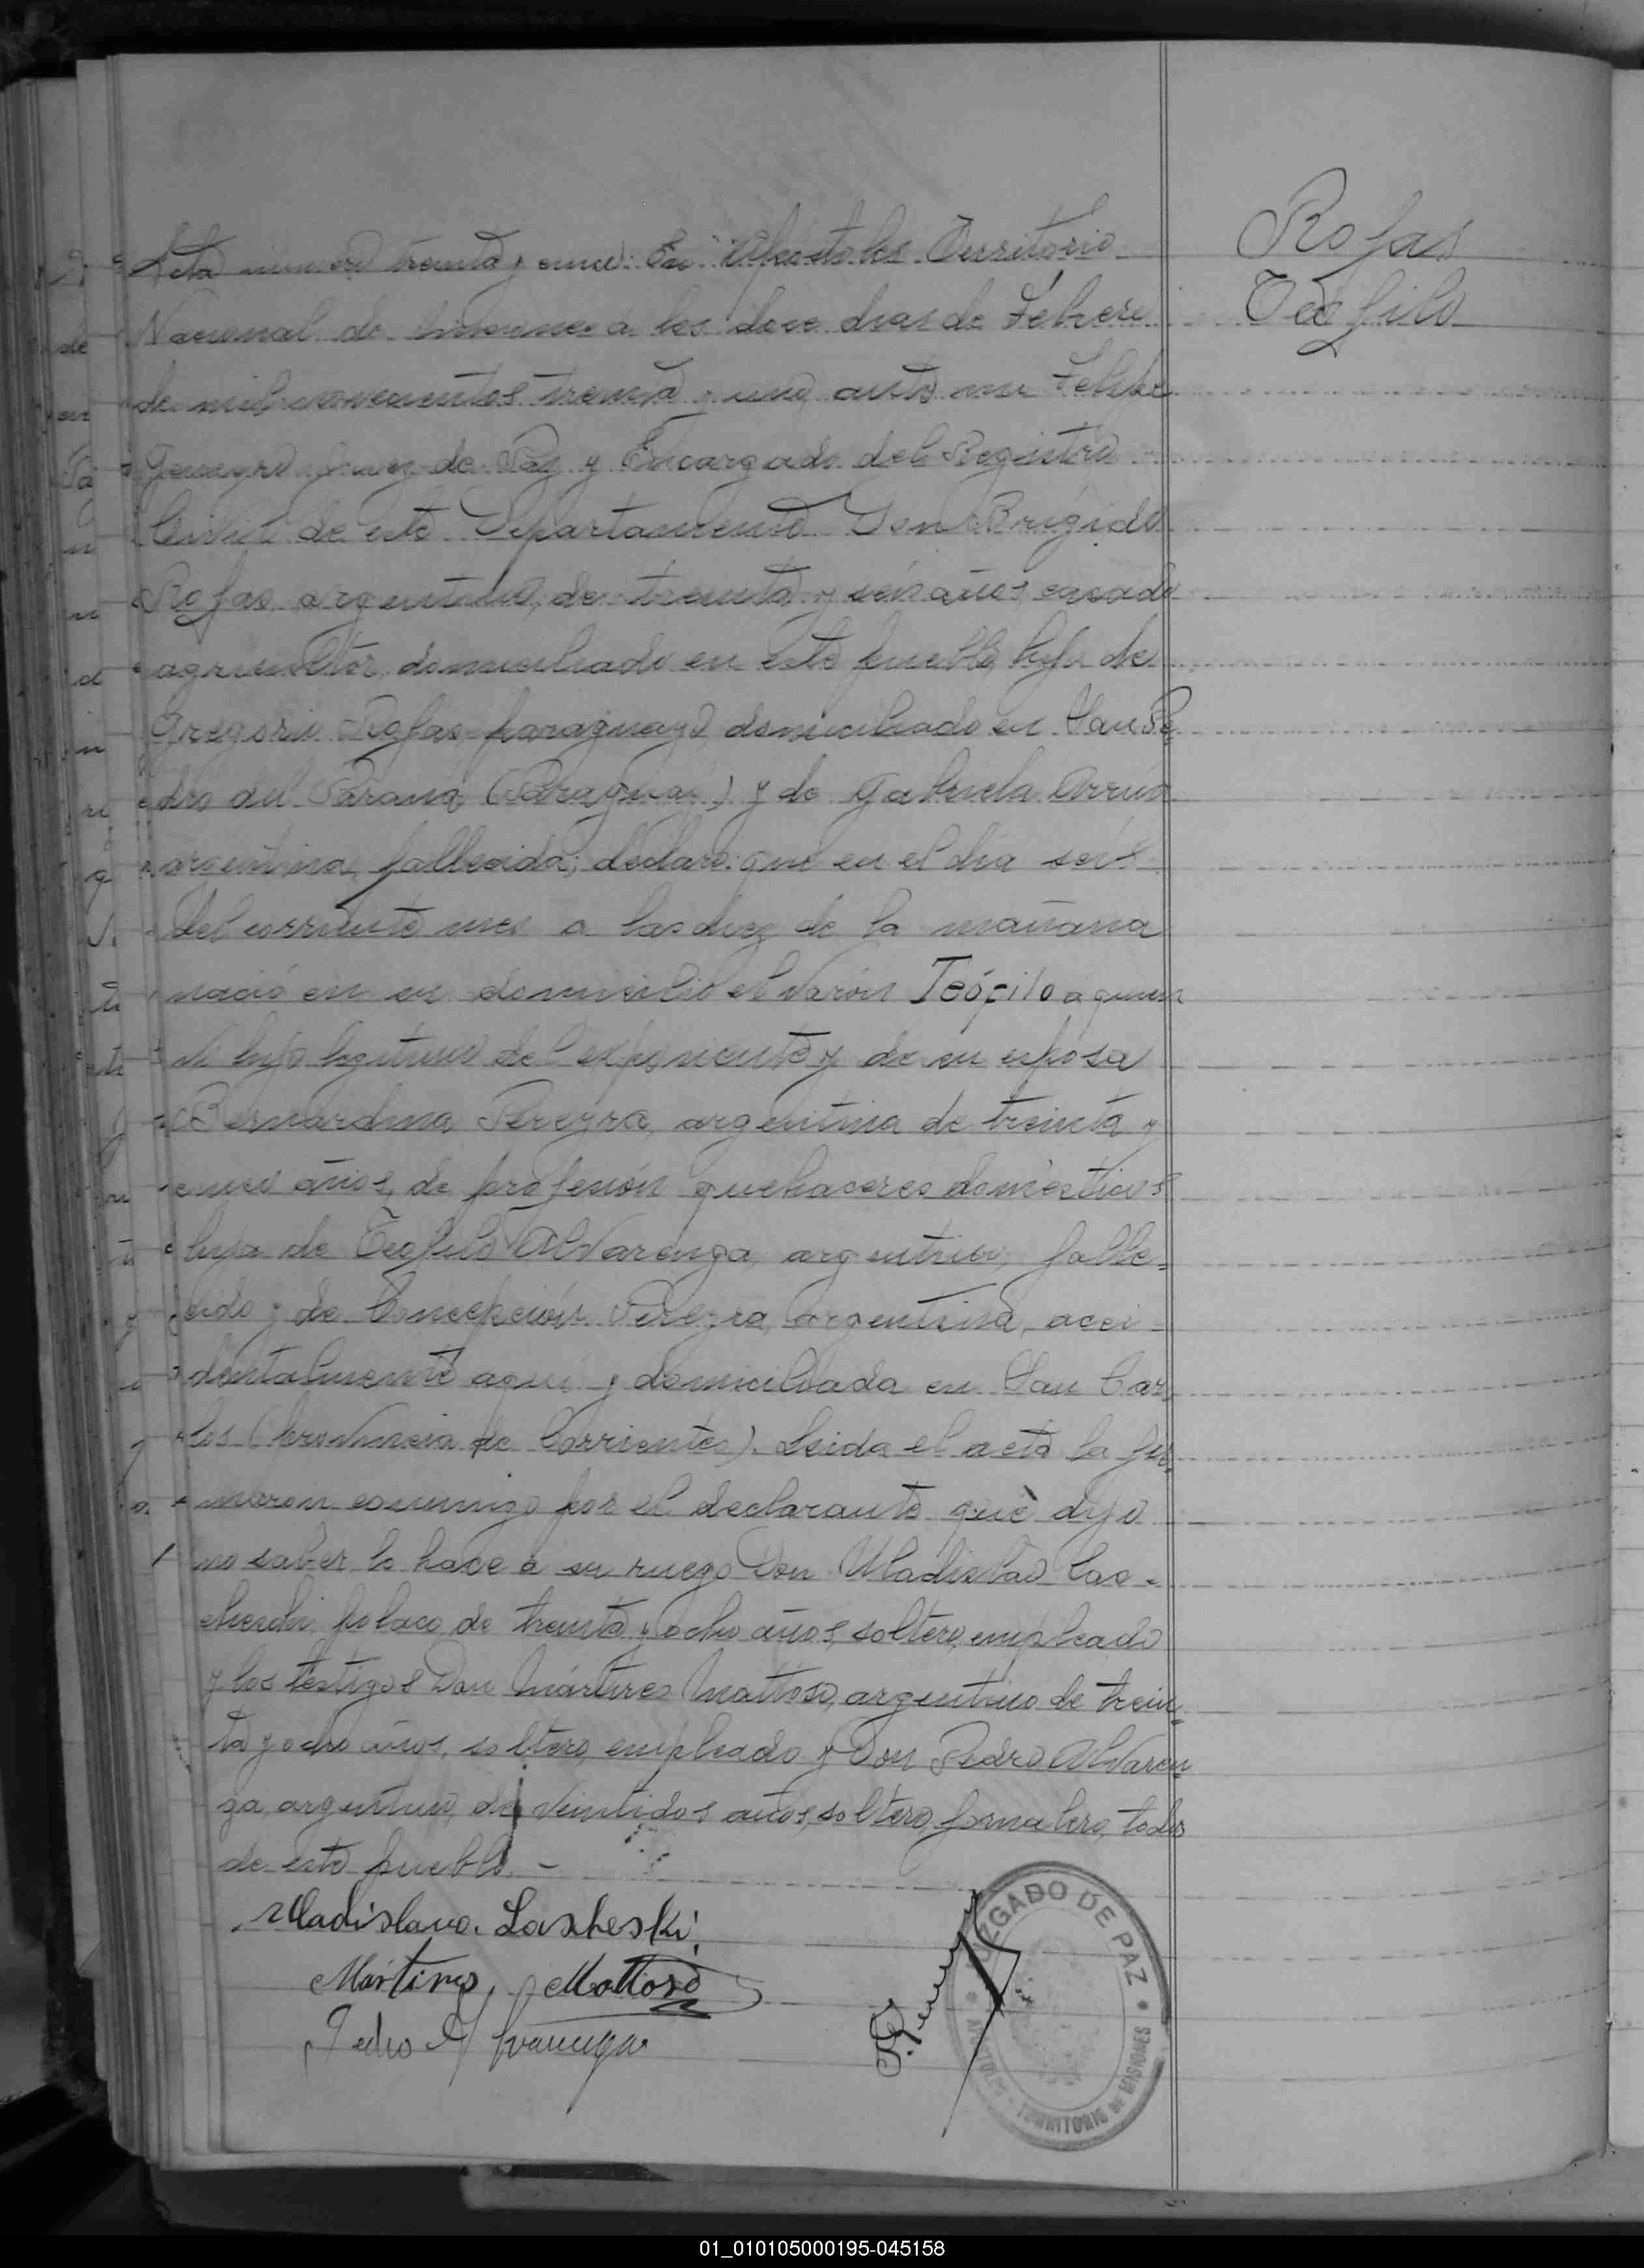 Rojas
Teófilo
Acta número treinta y cinco: En Apóstoles Territorio
Nacional de Misiones a los doce dias de Febrero
de mil novecientos treinta y uno, ante mi Felipe
Geneyro Juez de Paz y Encargado del Registro
Civil de este Departamento Don Brígido
Rojas, argentino, de treinta y seis años, casado
agricultor, domiciliado en este pueblo, hijo de
Gregorio Rojas paraguayo, domiciliado en San Pe
dro del Paraná (Paraguay) y de Gabriela
argentina, fallecida; declaró: que en el dia seis
del corriente mes a las diez de la mañana
nació en su domicilio el varón Teófilo a quien
ví hijo legitimo del exponente y de su esposa
Bernardina Pereyra, argentina de treinta y
cinco años, de profesión quehaceres domèsticos
hija de Teofilo Alvarenga, argentino, falle-
cido y de Concepción Pereyra, argentina, acci-
dentalmente aqui y domiciliada en San Car-
los (provincia de Corrientes). Leida el acta la fir-
maron conmigo por el declarante què dijo
no saber lo hace à su ruego Don Uladislao Las-
cheski polaco, de treinta y ocho años, soltero, empleado
y los testigos Don Mártires Mattoso, argentino de trein-
ta y ocho años, soltero, empleado y Don Pedro Alvaren-
ga, argentino, de veintidos años, soltero, jornalero, todos
de este pueblo. -
Uladislavo. Lascheski
Mártires Mattoso
Pedro Alvarenga
JUZGADO DE PAZ
APOSTOLES - TERRITORIO DE MISIONES
01_010105000195-045158